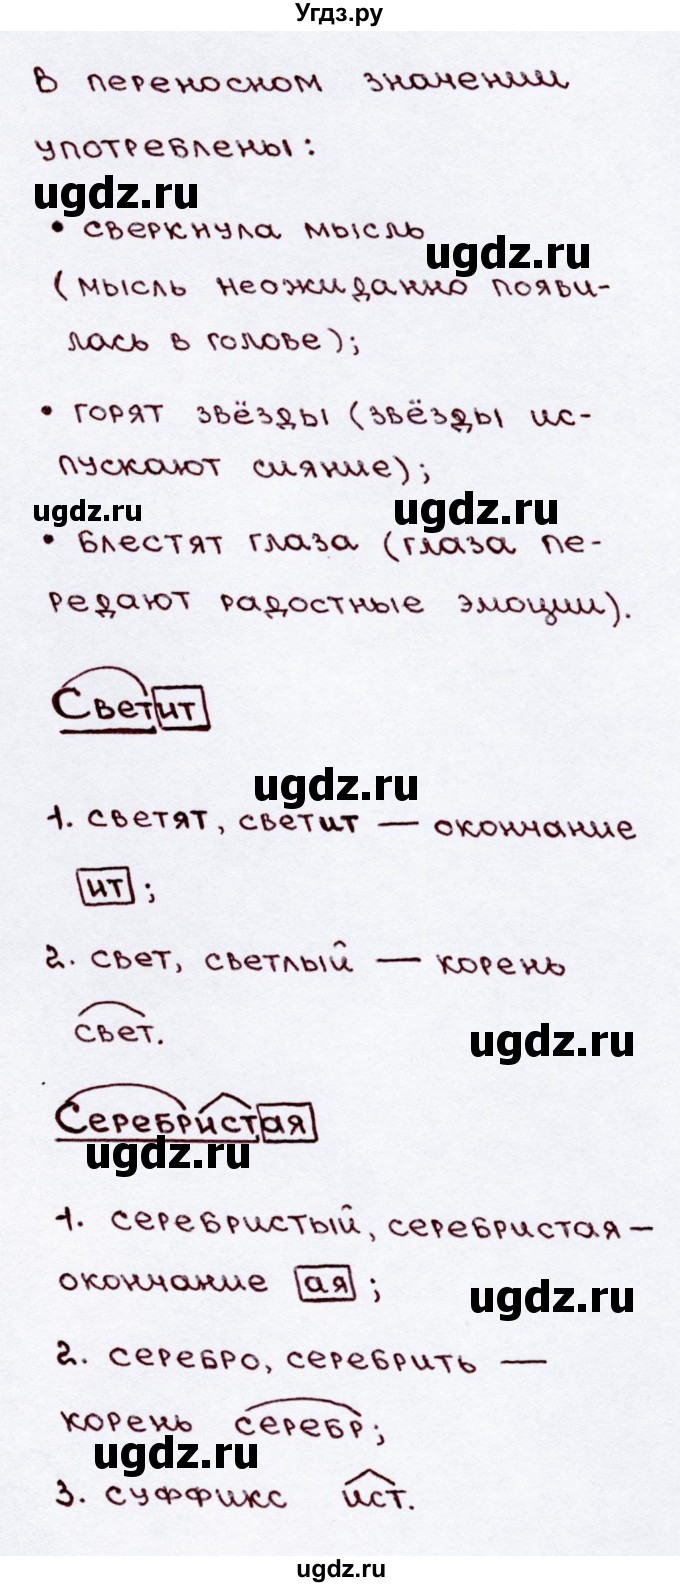 Угдз.ру
В переносном значении
употреблены:
ugdz.ru
• сверкнула мысль
ugdz.ru
(мысль неожиданно появи-
лась в голове);
• горят звёзды (звёзды ис-
пускают сияние);
ugdz.ru ugdz.ru
• блестят глаза (глаза пе-
редают радостные эмоции).
Светит
ugdz.ru
1. светят, светит — окончание
ит;
2. свет, светлый — корень
свет.
ugdz.ru
Серебристая
ugdz.ru
1. серебристый, серебристая —
окончание ая;
ugdz.ru
2. серебро, серебрить —
корень серебр;
ugdz.ru
3. суффикс ист.
ugdz.ru